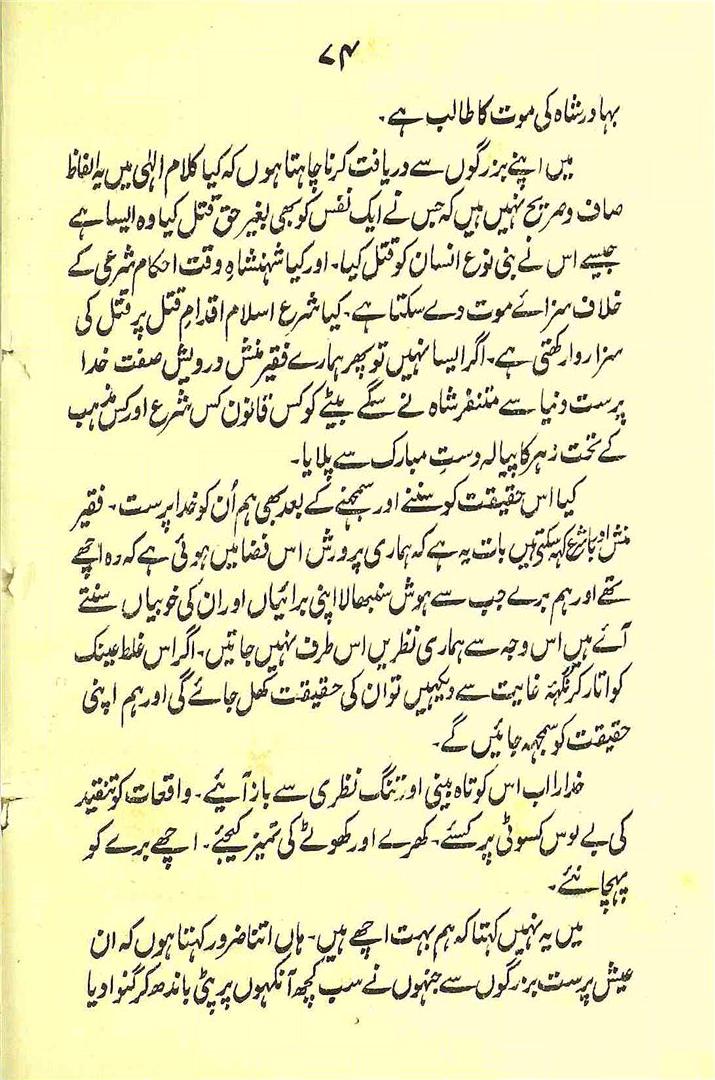 ۷۴
بہادر شاہ کی موت کا طالب ہے۔
میں اپنے بزرگوں سے دریافت کرنا چاہتا ہوں کہ کیا کلام الٰہی میں یہ الفاظ
صاف و صریح نہیں ہیں کہ جس نے ایک نفس کو بھی بغیر حق قتل کیا وہ ایسا ہے
جیسے اس نے بنی نوع انسان کو قتل کیا۔ اور کیا شہنشاہِ وقت احکام شرعی کے
خلاف سزائے موت دے سکتا ہے۔ کیا شرع اسلام اقدامِ قتل پر قتل کی
سزا روا رکھتی ہے۔ اگر ایسا نہیں تو پھر ہمارے فقیر منش درویش صفت خدا
پرست دنیا سے متنفر شاہ نے سگے بیٹے کو کس قانون کس شرع اور کس مذہب
کے تحت زہر کا پیالہ دستِ مبارک سے پلایا۔
کیا اس حقیقت کو سننے اور سمجھنے کے بعد بھی ہم اُن کو خدا پرست۔ فقیر
منش اور باشرع کہہ سکتے ہیں بات یہ ہے کہ ہماری پرورش اس فضا میں ہوئی ہے کہ وہ اچھے
تھے اور ہم برے جب سے ہوش سنبھالا اپنی برائیاں اور ان کی خوبیاں سنتے
آئے ہیں اس وجہ سے ہماری نظریں اس طرف نہیں جاتیں۔ اگر اس غلط عینک
کو اتار کر نگہۂ غایت سے دیکھیں تو ان کی حقیقت کھل جائے گی اور ہم اپنی
حقیقت کو سمجھ جائیں گے۔
خدارا اب اس کوتاہ بینی اور تنگ نظری سے باز آئیے۔ واقعات کو تنقید
کی بے لوس کسوٹی پر کسئے۔ کھرے اور کھوٹے کی تمیز کیجئے۔ اچھے برے کو
پہچانئے۔
میں یہ نہیں کہتا کہ ہم بہت اچھے ہیں۔ ہاں اتنا ضرور کہتا ہوں کہ ان
عیش پرست بزرگوں سے جنہوں نے سب کچھ آنکھوں پر پٹی باندھ کر گنوا دیا